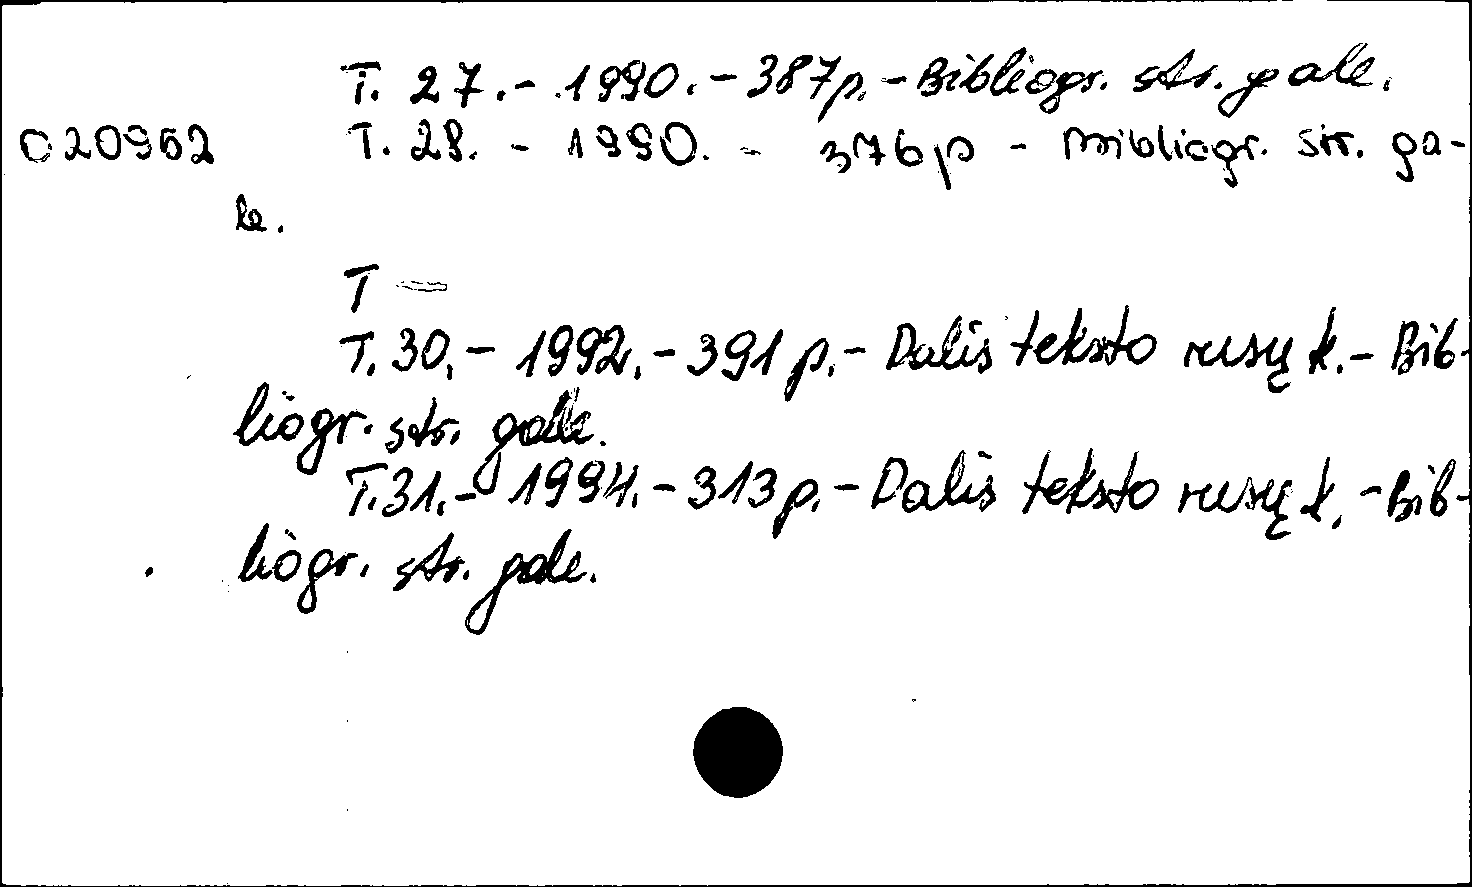 T. 27.- 1990.- 387p.- Bibliogr. str. gale.
C20952 T. 28. - 1990. - 376p - Bibliogr. str. ga-
le.
T
T. 30.- 1992.- 391 p.- Dalis teksto rusų k.- Bib-
liogr. str. gale.
T.31.- 1994.- 313p.- Dalis teksto rusų k.- Bib-
liogr. str. gale.